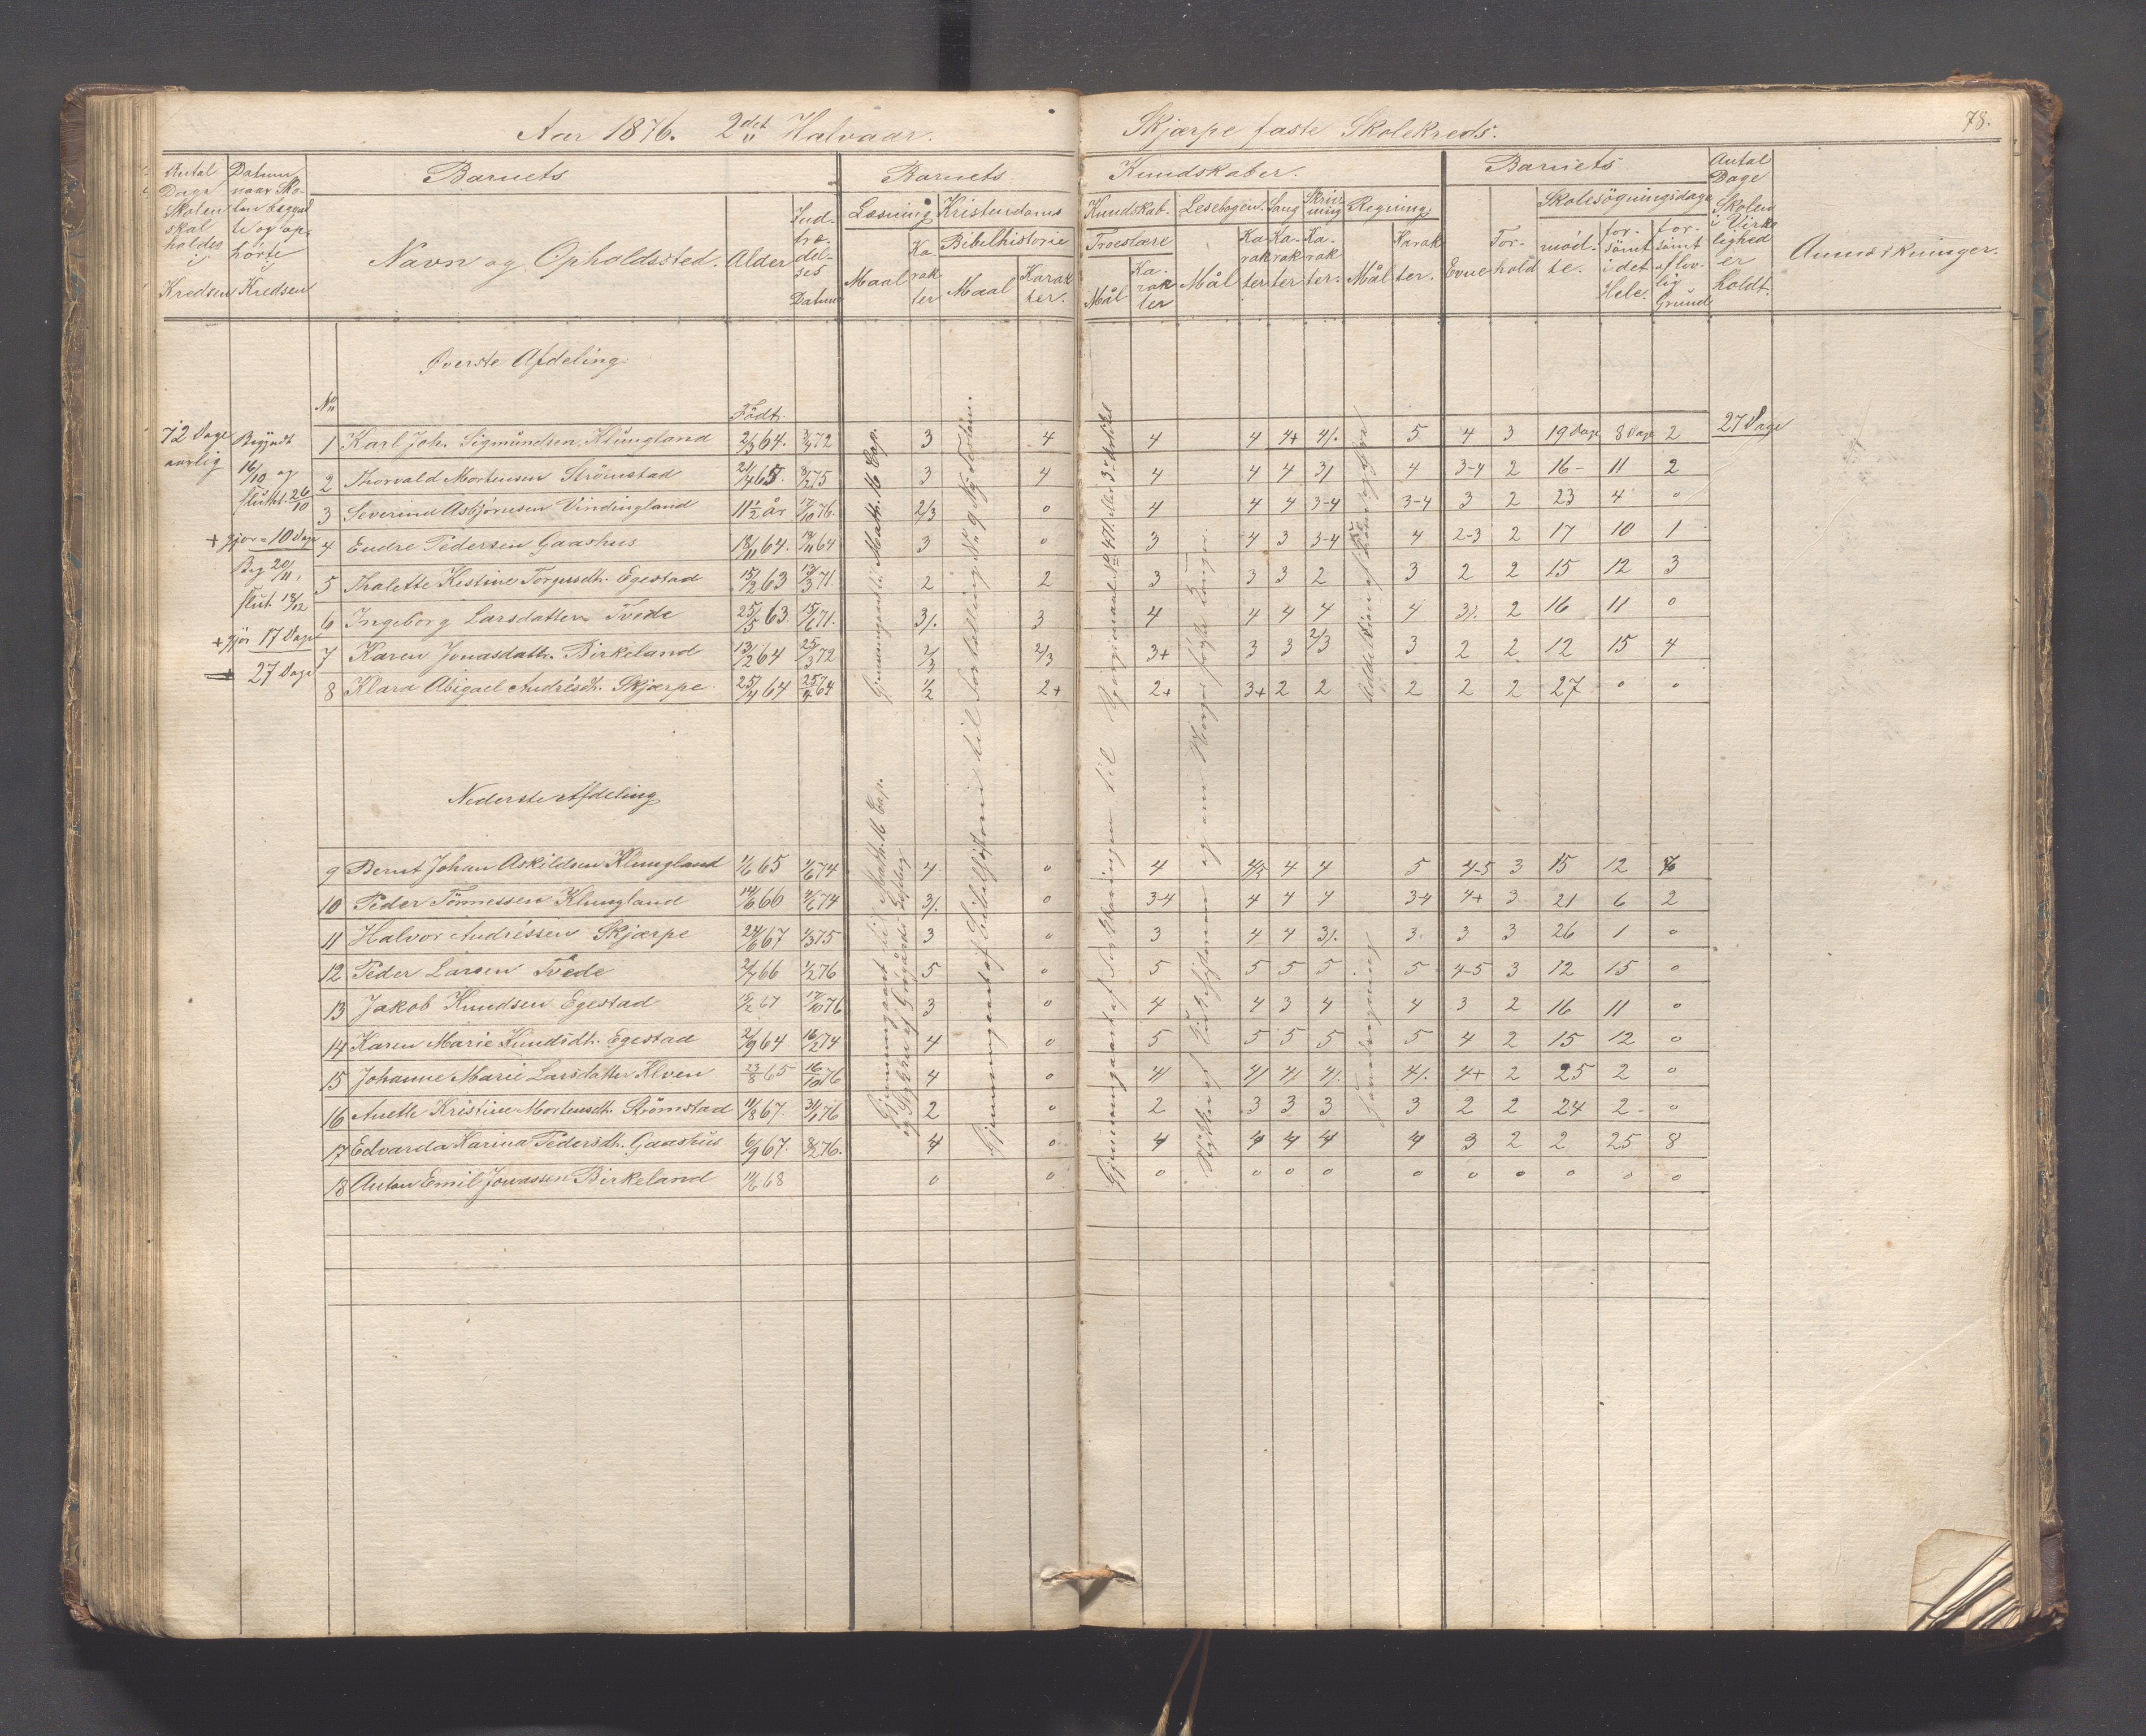 Aar 1876. 2det Halvaar. Skjærpe faste Skolekreds. 78.
Antal Dage Skolen skal holdes i Kredsen
Datum naar Skolen begyndte og ophörte i Kredsen
Barnets
Navn og Opholdssted. Alder Indtrædelses Datum
Barnets Kundskaber.
Læsning Maal Karakter
Kristendoms Kundskab.
Bibelhistorie Maal Karakter.
Troeslære Mål Karakter
Lesebogen. Mål Karakter
Sang Karakter
Skrivning Karakter.
Regning Mål Karakter.
Barnets
Evne Forhold
Skolesögningsdage
mödte. forsömt i det Hele. forsömt af lovlig Grund
Antal Dage Skolen i Virkelighed er holdt.
Anmærkninger.
Överste Afdeling
No Födt.
72 Dage aarlig
Begyndt 16/10 og sluttet 26/10
+ gjör = 10 Dage
Beg 20/11, slut. 18/12
+ gjör 17 Dage
= 27 Dage
27 Dage
1 Karl Joh. Sigmundsen Klungland 2/3 64. 72 3 4 4 4 4+ 4/. 5 4 3 19 Dage 8 Dage 2
2 Thorvald Mortensen Strömstad 21/4 65. 75 3 4 4 4 4 3/ 4 3-4 2 16- 11 2
3 Severine Asbjörnsen Vindingland 11 1/2 år 17/10 76. 2/3 0 4 4 4 3-4 3-4 3 2 23 4 0
4 Endre Pedersen Gaashus 18/11 64. 18/11 64 3 0 3 4 3 3-4 4 2-3 2 17 10 1
5 Thalette Kestine Torgersdtr. Egestad 15/2 63 13/3 71. 2 2 3 3 3 2 3 2 2 15 12 3
6 Ingeborg Larsdatter Tvede 25/5 63. 15/6 71. 3/. 3 4 4 4 4 4 3/. 2 16 11 0
7 Karen Jonasdatter. Birkeland 13/2 64 25/3 72 2/3 2/3 3+ 3 3 2/3 3 2 2 12 15 4
8 Klara Abigael Andrésdt. Skjærpe. 25/4 64 25/4 64 1/2 2+ 2+ 3+ 2 2 2 2 2 27 0 0
Gjennemgaaet til Math. 16 Cap.
Nederste Afdeling
9 Bernt Johan Askildsen Klungland 1/6 65 1/6 74 4 0 4 4/5 4 4 5 4-5 3 15 12
10 Peder Tönnessen Klungland 14/6 66 74 3/. 0 3-4 4 4 4 3-4 4+ 3 21 6 2
11 Halvor Andréssen Skjærpe 24/6 67 1/3 75 3 0 3 4 4 3/. 3. 3 3 26 1 0
12 Peder Larsen Tvede 2/7 66 1/2 76 5 0 5 5 5 5 5 4-5 3 12 15 0
13 Jakob Knudsen Egestad 67 17/10 76 3 0 4 4 3 4 4 3 2 16 11 0
14 Karen Marie Knudsdt. Egestad 2/9 64 16/2 74 4 0 5 5 5 5 5 4 2 15 12 0
15 Johanne Marie Larsdatter Klven 23/8 65 16/10 76 4 0 4/ 4/ 4/. 4/. 4/. 4+ 2 25 2 0
16 Anette Kristine Mortensdt. Strömstad 11/8 67. 31/1 76 2 0 2 3 3 3 3 2 2 24 2 0
17 Edvarda Karina Pedersdt. Gaashus 6/9 67. 8/2 76. 4 0 4 4 4 4 4 3 2 2 25 8
18 Anton Emil Jonassen Birkeland 11/6 68 0 0 0 0 0 0 0 0 0 0 0 0
Gjennemgaaet til Math. 16 Cap.
Gjennemgaaet af Bibelhistorie til Fortelling No 9 Ny Testam.
Gjennemgaaet af Forklaringen til